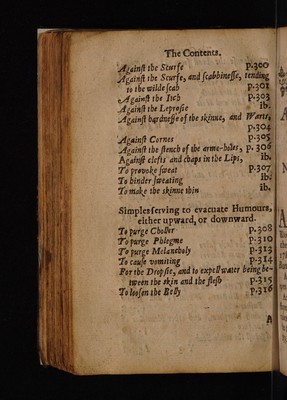 The Contents.
Againſt the Scurfe p.300
Againſt the Scurfe, and ſcabbineſſe, tending
to the wilde ſcab p.301
Againſt the Itch p.303
Againſt the Leproſie ib.
Againſt hardneſſe of the skinne, and Warts,
p.304
Againſt Cornes p.305
Againſt the ſtench of the arme-holes, p. 306
Againſt clefts and chaps in the Lips, ib.
To provoke ſweat p.307
To hinder ſweating ib.
To make the skinne thin ib.
Simples ſerving to evacuate Humours,
either upward, or downward.
To purge Choller p.308
To purge Phlegme p.310
To purge Melancholy p.313
To cauſe vomiting p.314
For the Dropſie, and to expell water being be-
tween the skin and the fleſh p.315
To looſen the Belly p.316
A